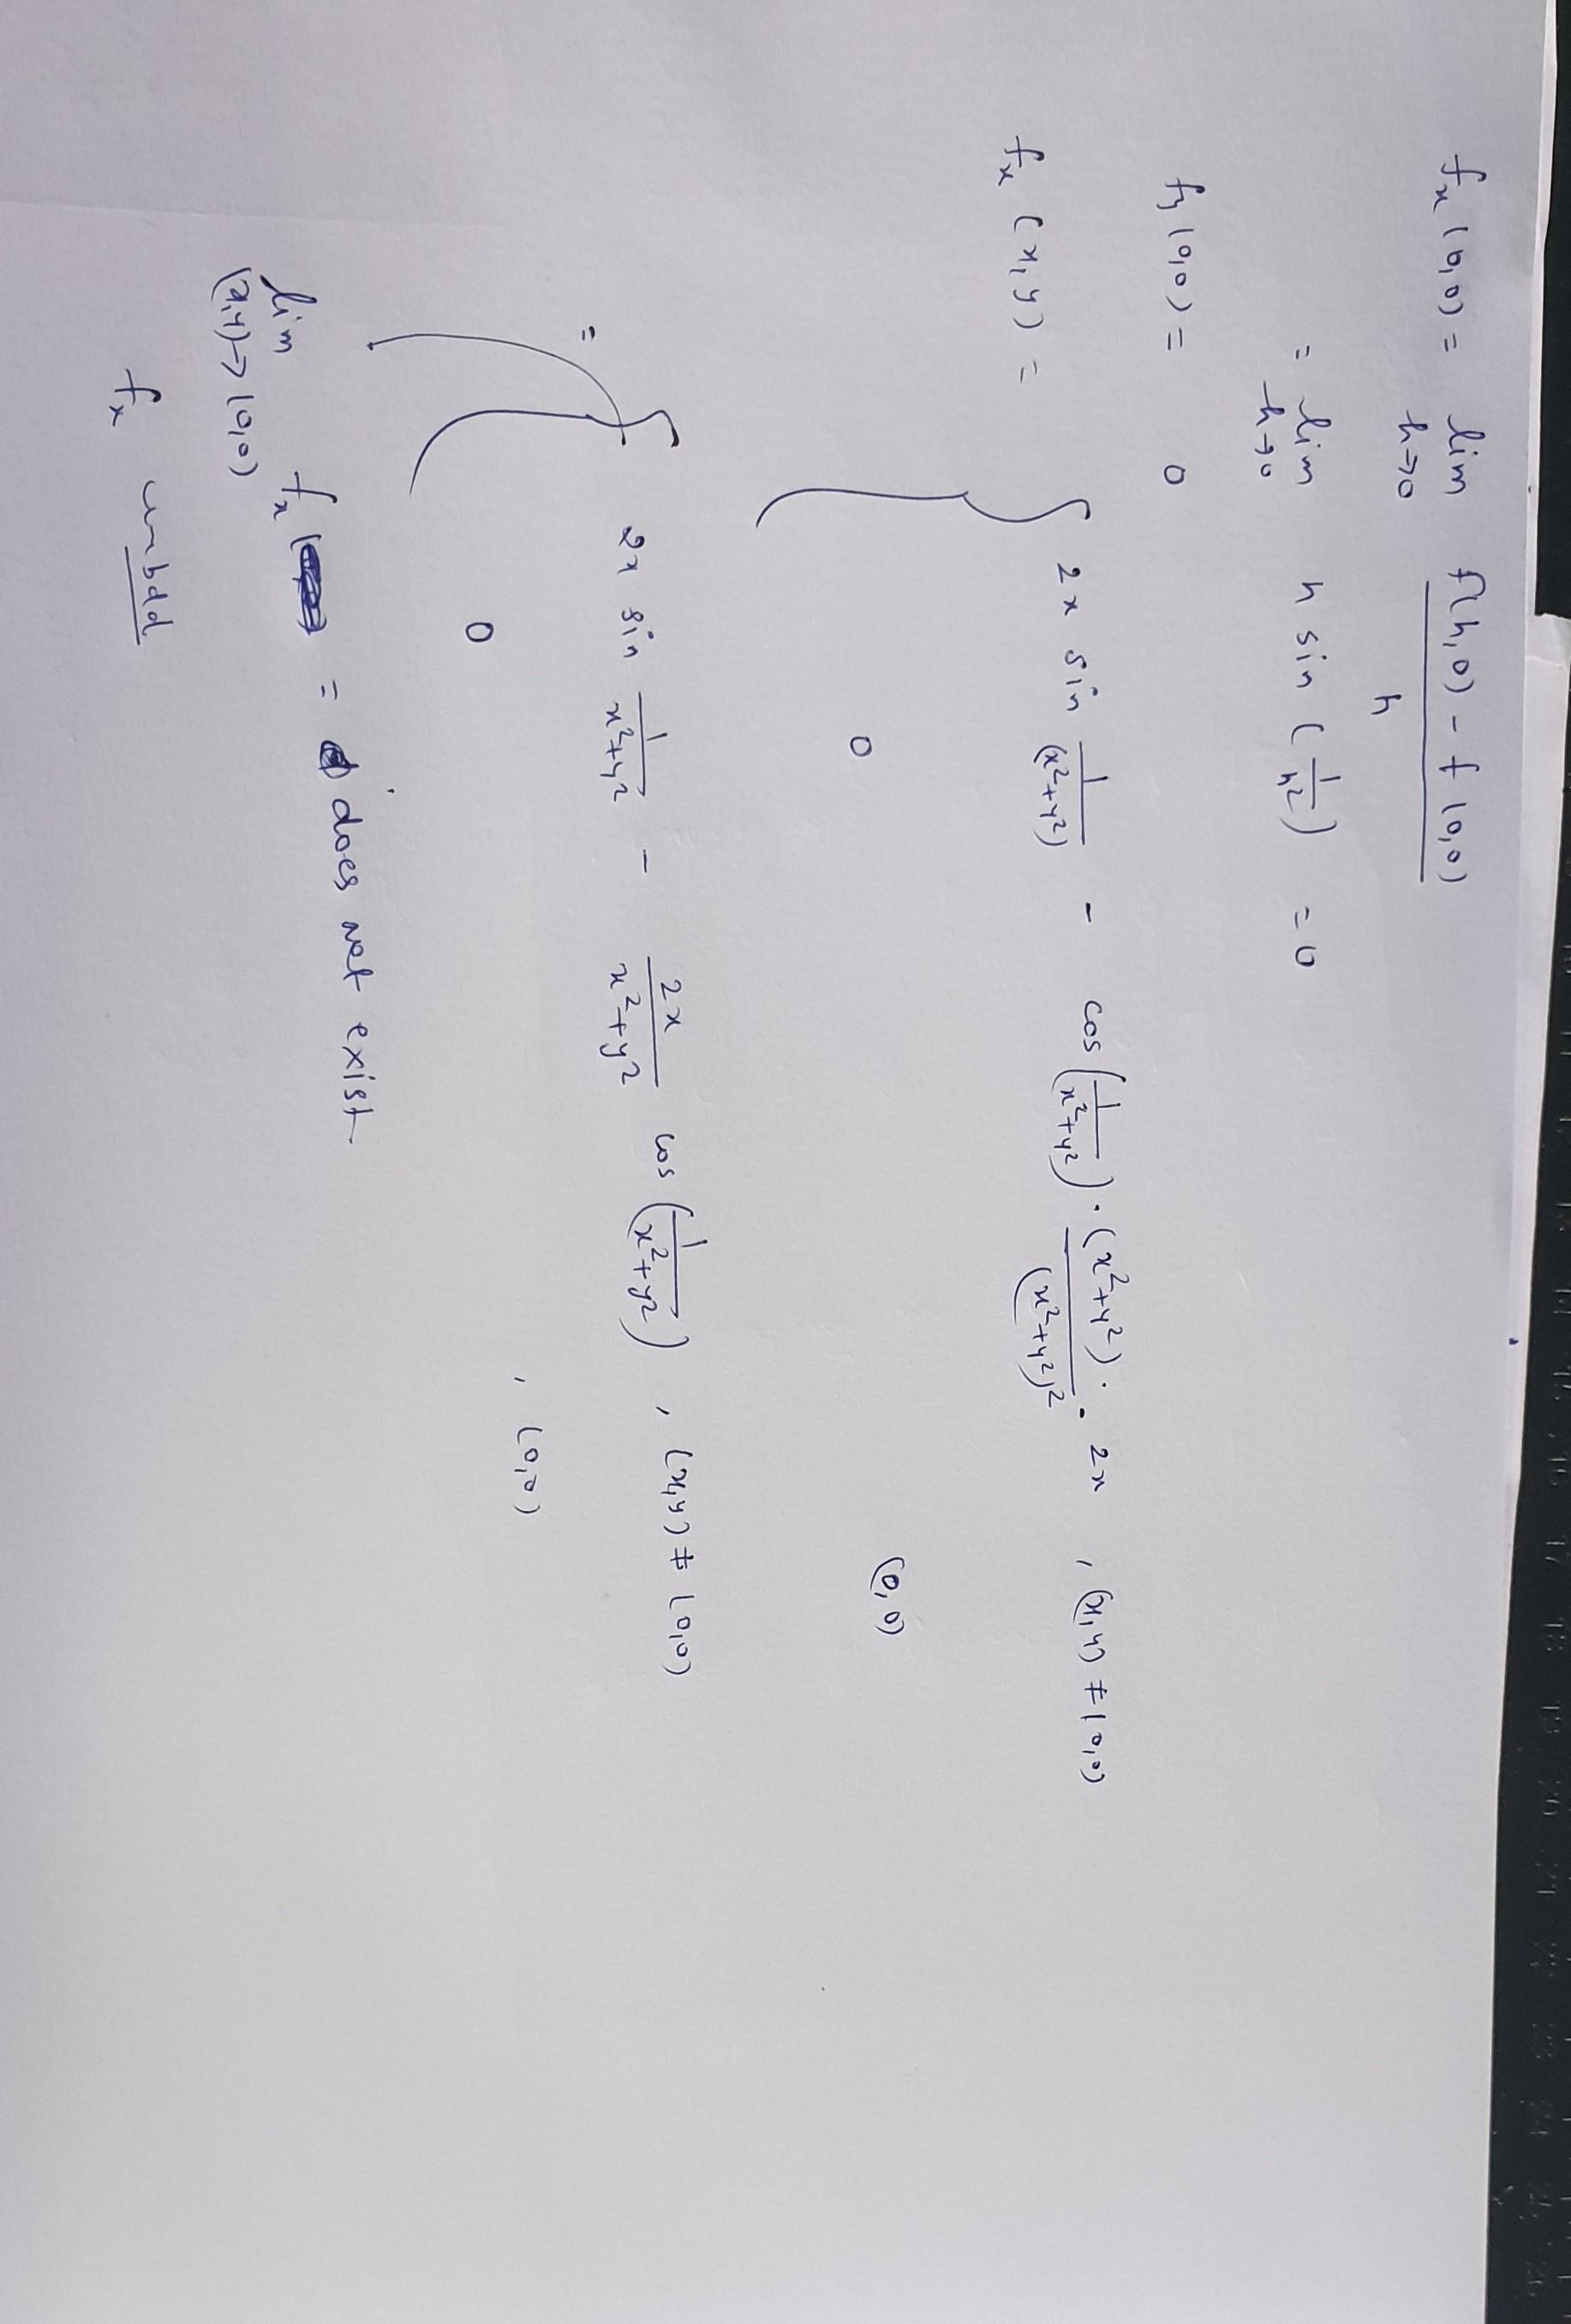 fx (0,0) = lim h→0 f(h,0) - f(0,0) / h
= lim h→0 h sin (1/h²) = 0
fy (0,0) = 0
fx (x,y) = { 2x sin 1/(x²+y²) - cos (1/x²+y²) · (x²+y²) · / (x²+y²)² · 2x , (x,y) ≠ (0,0)
0 (0,0)
= { 2x sin 1/x²+y² - 2x/x²+y² cos (1/x²+y²) , (x,y) ≠ (0,0)
0 , (0,0)
lim (x,y)→(0,0) fx = does not exist
fx unbdd